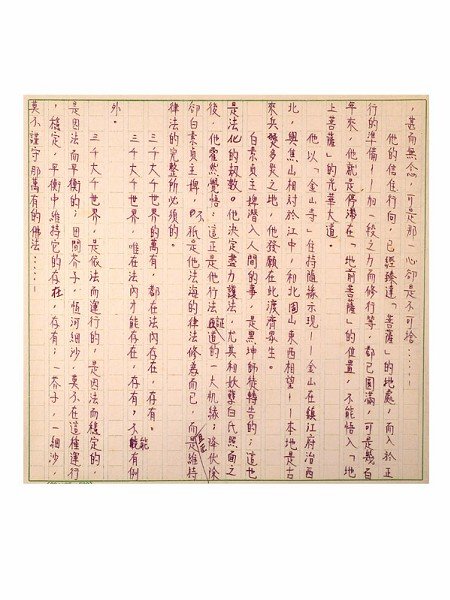 ，甚而無念，可是那一心卻是不可捨……
他的信住行向，已經臻達「菩薩」的地處，而入於正
行的準備——加一段之力而修行等，都已圓滿，可是幾百
年來，他就是停滯在「地前菩薩」的位置，不能悟入「地
上菩薩」的光華大道。
他以「金山寺」住持隨緣示現——金山在鎮江府治西
北，與焦山相對於江中，和北固山東西相望——本地是古
來兵燹多災之地，他發願在此渡濟眾生。
白素貞主婢潛入人間的事，是黑坤師徒轉告的；這也
是法化的劫數。他決定盡力護法，尤其相妖孽白氏照面之
後，他霍然覺悟：這正是他行法證道的一大机緣；降伏徐
卻白素貞主婢，不祇是他法海的律法修為而已，而是維持
律法的完整所必須的。
三千大千世界的萬有，都在法內存在，存有。
三千大千世界，唯在法內才能存在，存有；不能有例
外。
三千大千世界，是依法而運行的，是因法而穩定的
是因法而平衡的；因閻芥子，恆河細沙，莫不在這種運行
，穩定，平衡中維持它的存在，存有；一芥子，一細沙，
莫不謹守那萬有的佛法……！